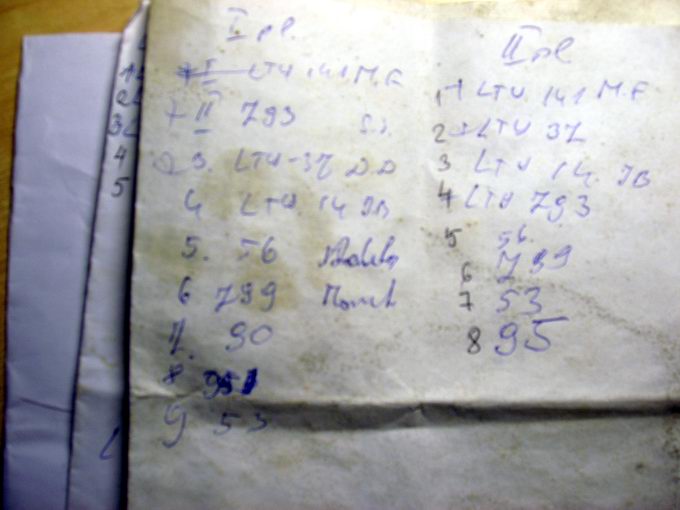 I pl.
I LTU 141 M.F
+ II 793 S.J.
3. LTU-37 D.D
4 LTU. 14 JB
5. 56
6 799
7. 90
8 951
9 53
II pl
1 + LTU 141 M.F
2 + LTU 37
3 LTU 14. JB
4 + LTU 793
5 56.
6 799
7 53
8 95
1
2
3
4
5